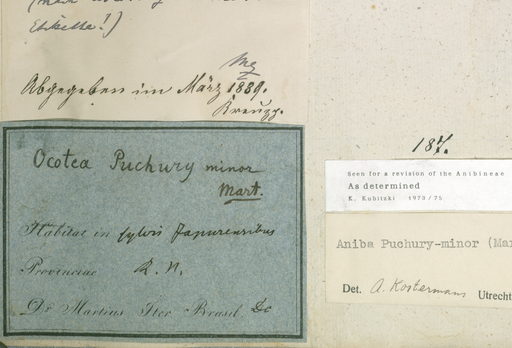 Etikette!)
Abgegeben im März 1889.
Kreuzp.
Ocotea Puchury minor
Mart.
Habitat in sylvis Japurensibus
Provinciae R. N.
Dr Martius Iter Brasil. Dc
187.
Seen for a revision of the Anibineae
As determined
K. Kubitzki 1973/75
Aniba Puchury-minor (Mar
Det. A. Kostermans Utrecht